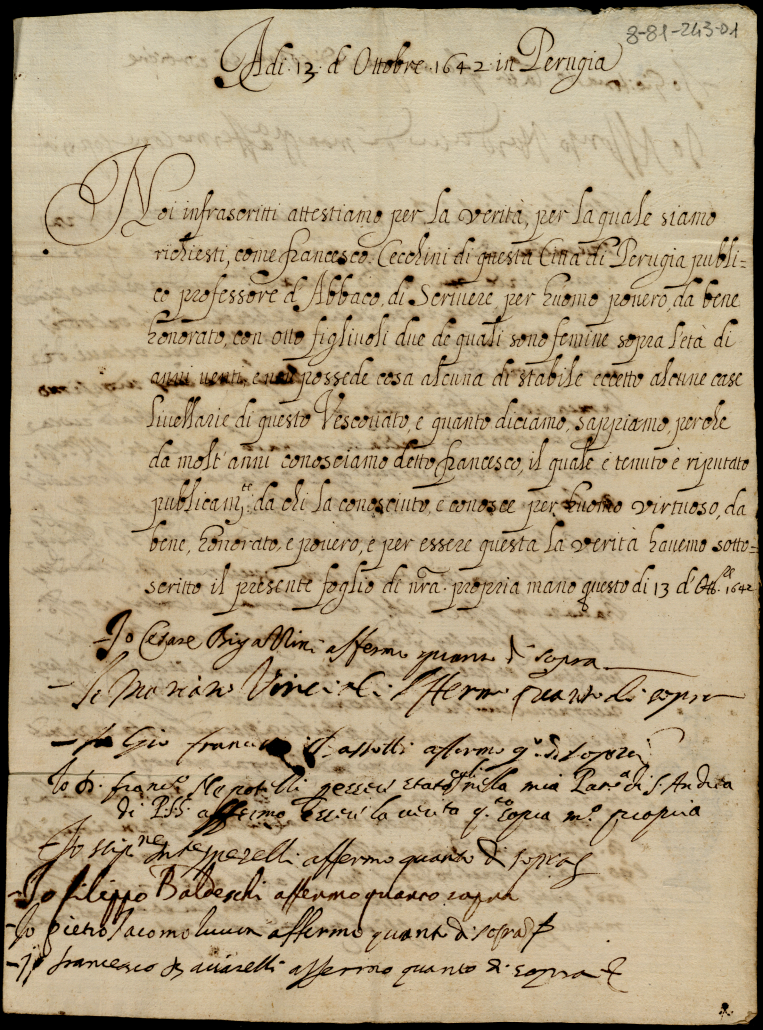 8-81-243-01
Adi 13 d Ottobre 1642 in Perugia
Noi infrascritti attestiamo per la verità, per la quale siamo
richiesti, come francesco Cecchini di questa Città di Perugia publi=
co professore d'Abbaco, di Scrivere per huomo povero, da bene
honorato, con otto figlivoli due de quali sono femine sopra l'età di
anni venti, e non possede cosa alcuna di stabile eccetto alcune case
livellarie di questo Vescovato, e quanto diciamo, sappiamo, perche
da molt'anni conosciamo detto francesco, il quale e tenuto è riputato
publicam.te da chi la conosciuto, e conosce per huomo virtuoso, da
bene, honorato, e povero, e per essere questa la verità havemo sotto=
scritto il presente foglio di nr̃a propria mano questo di 13 d'Ott.bre 1642
Io Cesare affermo quanto di sopra
Io Mariano Vincioli affermo quanto di sopra
Io Gio francesco affermo q.to di sopra
Io D. franc.o Napotelli essere stato nella mia Par.a di S. Andrea
di P.S. affermo essere la verità q.to sopra m.o propria
Io affermo quanto di sopra
Io filippo Baldeschi affermo quanto sopra
Io pietro Jacomo affermo quanto di sopra
Io francesco affermo quanto di sopra